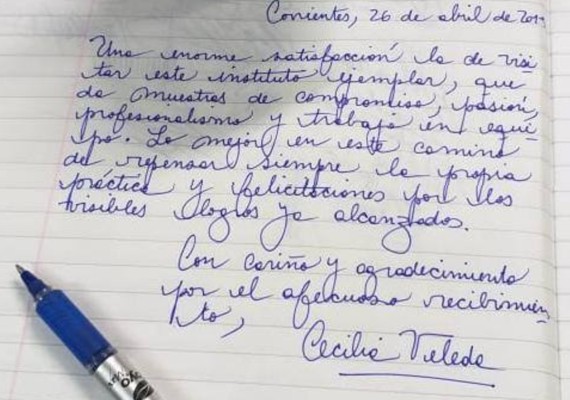 Corrientes, 26 de abril de 201
Una enorme satisfacción la de visi
tar este instituto ejemplar, que
da muestras de compromiso, pasión,
profesionalismo y trabajo en equi
po. Lo mejor en este camino
de repensar siempre la propia
práctica y felicitaciones por los
visibles logros ya alcanzados.
Con cariño y agradecimiento
por el afectuoso recibimien
to,
Cecilia Veleda